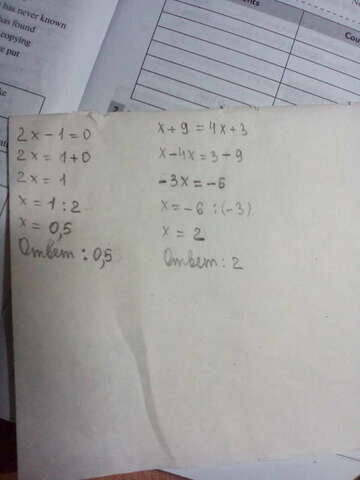 has never known
has found
copying
put
ents
Cou
2x - 1 = 0
2x = 1+0
2x = 1
x = 1 : 2
x = 0,5
Ответ : 0,5
x + 9 = 4x + 3
x - 4x = 3 - 9
-3x = -6
x = -6 : (-3)
x = 2
Ответ : 2